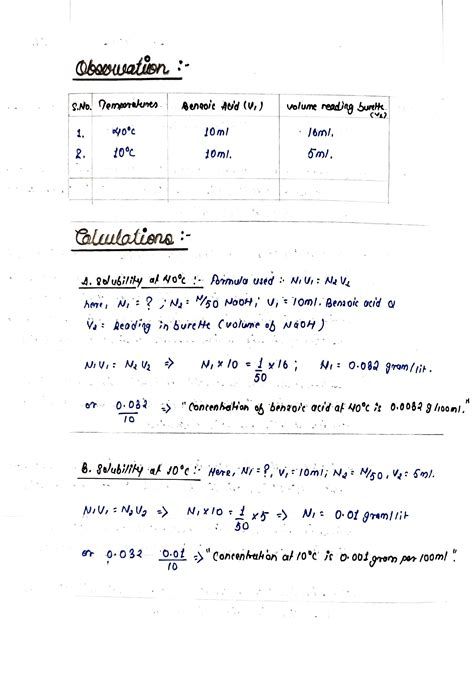 Observation :-
S.No. Temperatures Benzoic Acid (V₁) volume reading burette (V₂)
1. 40°C 10ml 16ml.
2. 10°C 10ml. 5ml.
Calculations :-
A. Solubility at 40°C :- Formula used :- N₁V₁ = N₂V₂
here, N₁ = ? ; N₂ = N/50 NaOH ; V₁ = 10ml. Benzoic acid &
V₂ = Reading in burette (volume of NaOH)
N₁V₁ = N₂V₂ => N₁ x 10 = 1/50 x 16 ; N₁ = 0.032 gram/lit.
or 0.032/10 => "Concentration of benzoic acid at 40°C is 0.0032 g/100ml."
B. Solubility at 10°C :- Here, N₁ = ?, V₁ = 10ml; N₂ = N/50, V₂ = 5ml.
N₁V₁ = N₂V₂ => N₁ x 10 = 1/50 x 5 => N₁ = 0.01 gram/lit
or 0.032 0.01/10 => "Concentration at 10°C is 0.001 gram per 100ml".